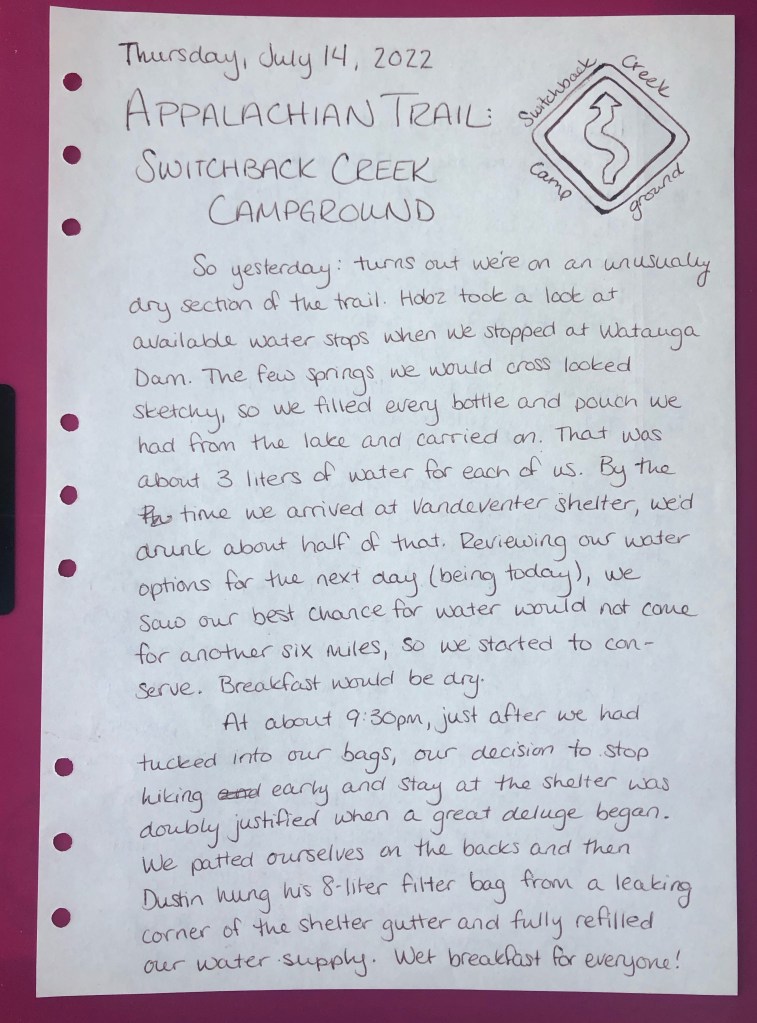 Thursday, July 14, 2022
Switchback Creek
Camp ground
APPALACHIAN TRAIL:
SWITCHBACK CREEK
CAMPGROUND
So yesterday: turns out we're on an unusually
dry section of the trail. Hobz took a look at
available water stops when we stopped at Watauga
Dam. The few springs we would cross looked
sketchy, so we filled every bottle and pouch we
had from the lake and carried on. That was
about 3 liters of water for each of us. By the
time we arrived at Vandeventer Shelter, we'd
drunk about half of that. Reviewing our water
options for the next day (being today), we
saw our best chance for water would not come
for another six miles, so we started to con-
serve. Breakfast would be dry.
At about 9:30pm, just after we had
tucked into our bags, our decision to stop
hiking and early and stay at the shelter was
doubly justified when a great deluge began.
We patted ourselves on the backs and then
Dustin hung his 8-liter filter bag from a leaking
corner of the shelter gutter and fully refilled
our water supply. Wet breakfast for everyone!